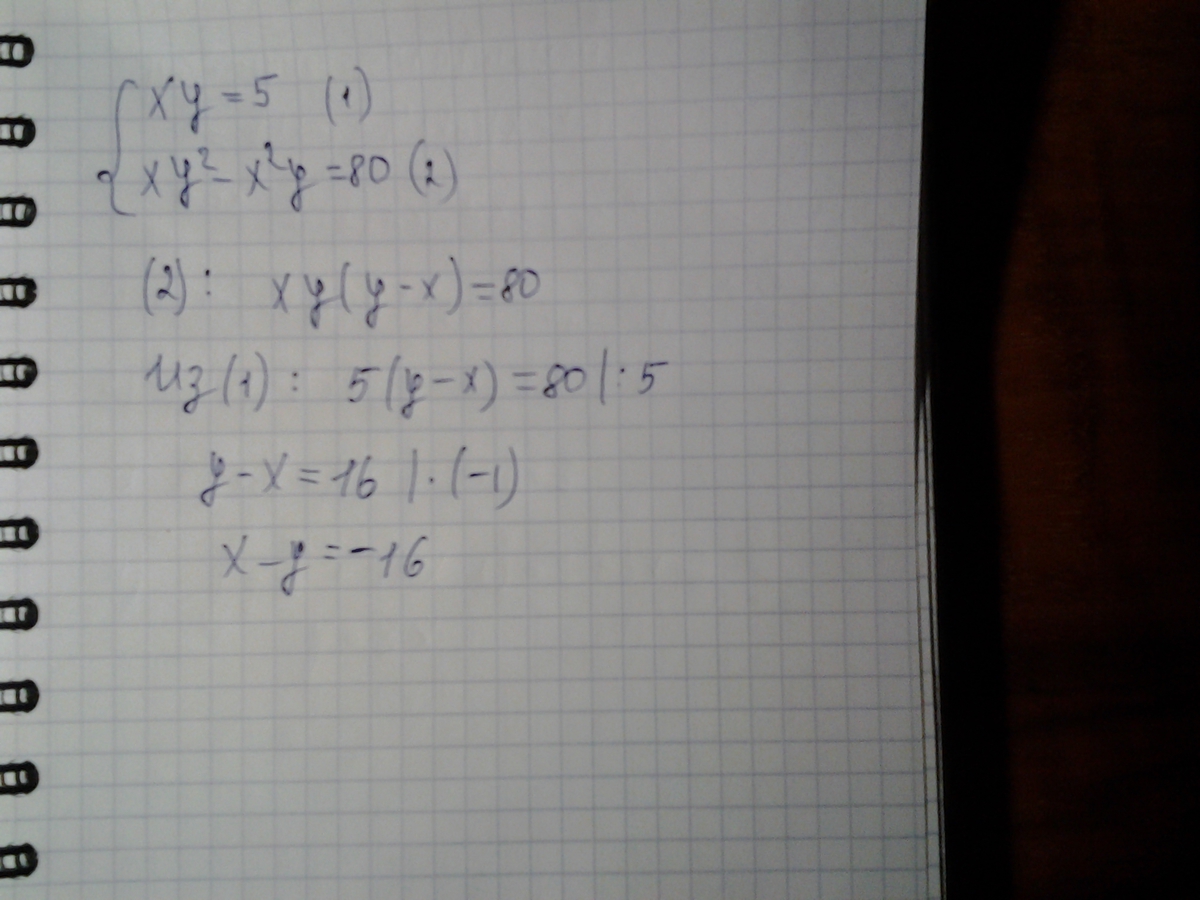 { xy = 5 (1)
xy² - x²y = 80 (2)
(2): xy(y - x) = 80
Из (1): 5(y - x) = 80 | : 5
y - x = 16 | · (-1)
x - y = -16